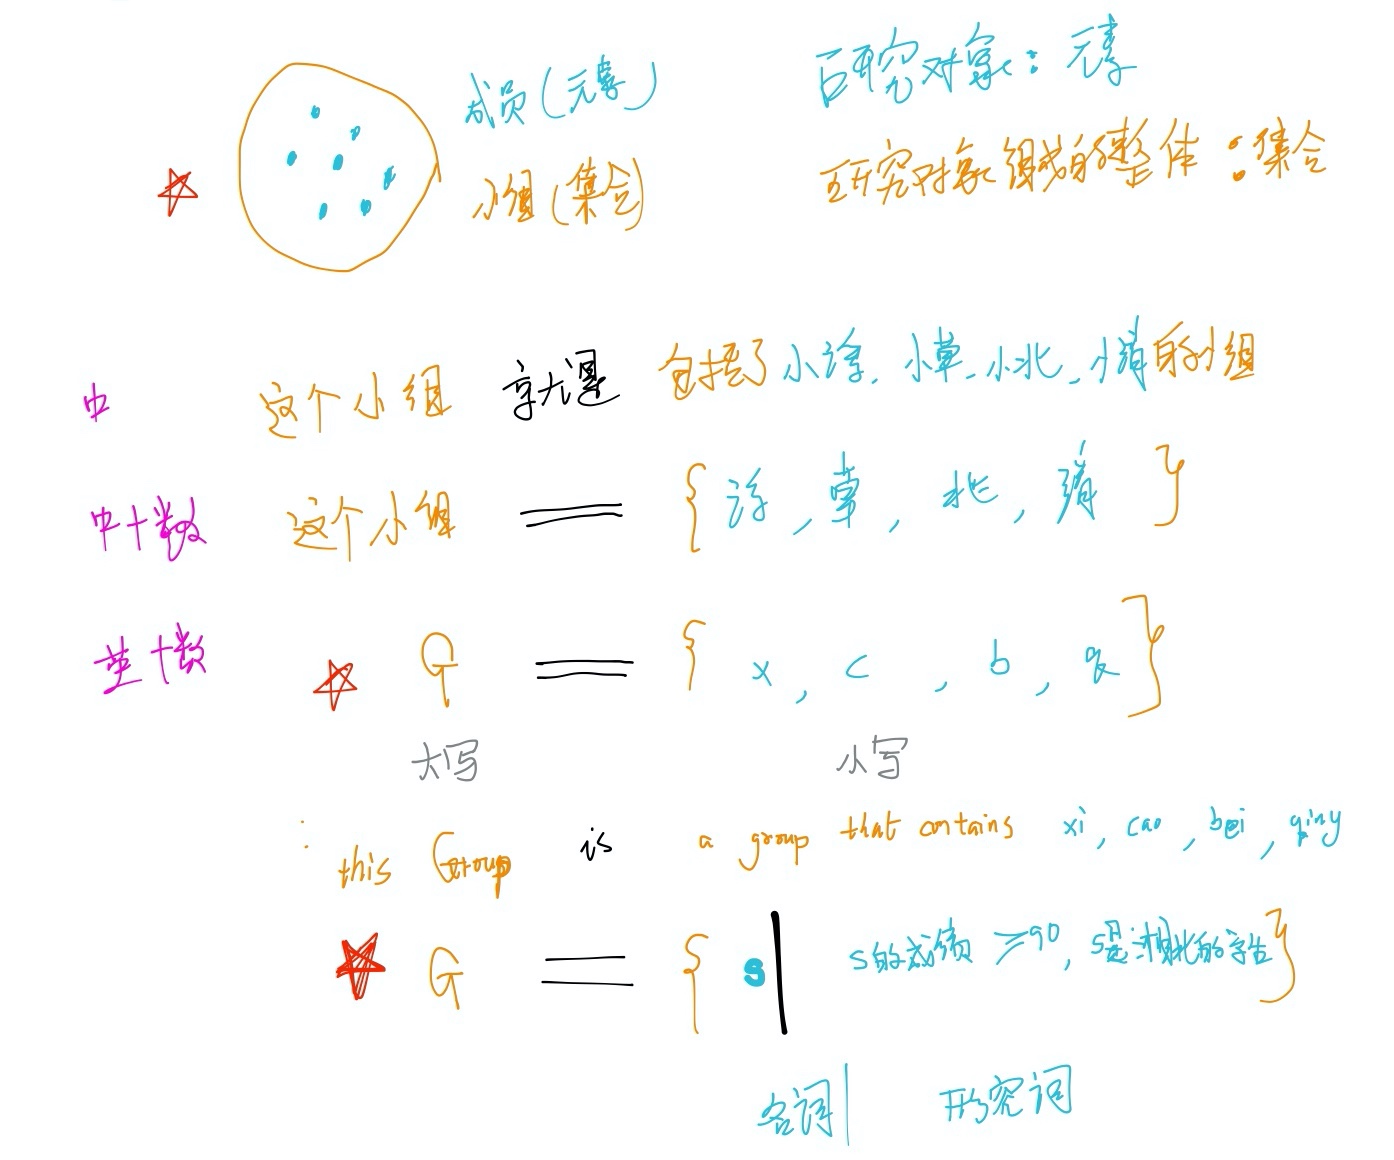 成员(元素)
研究对象：元素
小组(集合)
研究对象组成的整体：集合
中 这个小组 就是 包括了小涂、小草、小北、小清的小组
中+数 这个小组 = { 涂, 草, 北, 清 }
英+数 G = { x, c, b, q }
大写 小写
this Group is a group that contains xi, cao, bei, qing
G = { s | s的成绩 ≥90, s是湖北的学生 }
名词 | 形容词